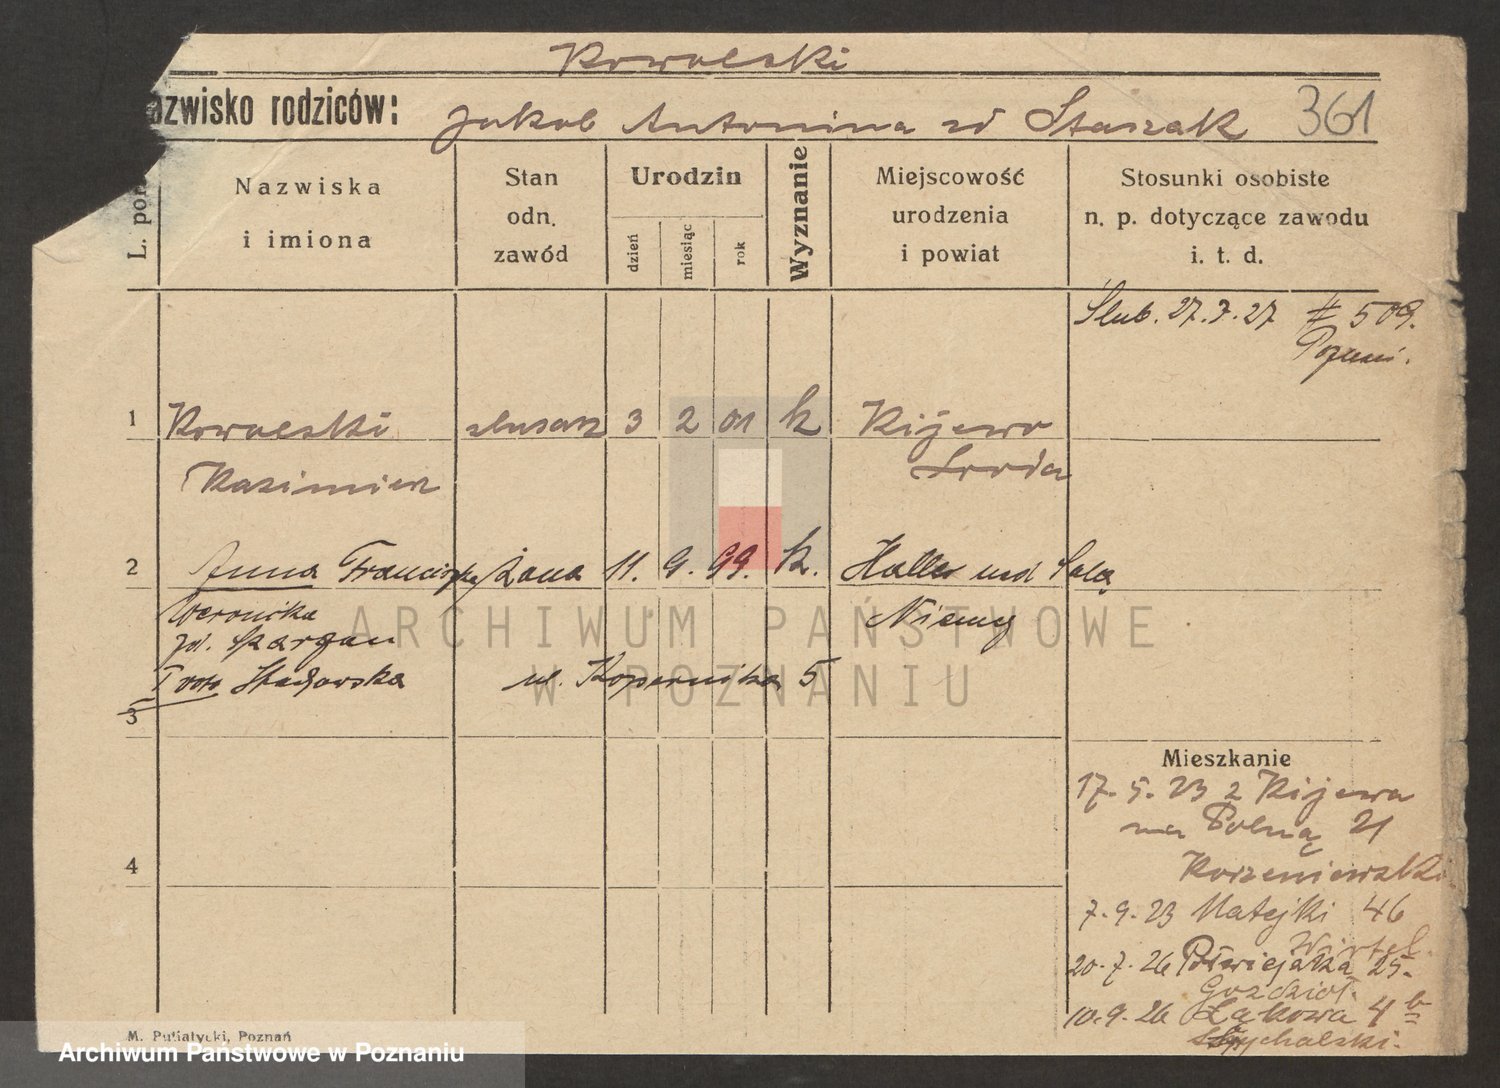 Kowalski
azwisko rodziców: Jakob Antonina zd Staszak 361
L. por
Nazwiska
i imiona
Stan
odn.
zawód
Urodzin
dzień
miesiąc
rok
Wyznanie
Miejscowość
urodzenia
i powiat
Stosunki osobiste
n. p. dotyczące zawodu
i. t. d.
Ślub. 27.3.27 # 509.
1 Kowalski ślusarz 3 2 01 k Kijewo
Kazimierz Środa
2 Anna Franciszka żona 11. 9. 99. k. Halle nad Salą
Weronika Niemcy
zd.
I voto ul. Kopernika 5
3
Mieszkanie
17.5.23 z Kijewa
na Polną 21
Korzeniewski
4
7.9.23 Matejki 46
20.7.26 Półwiejska 25.
10.9.26 Łąkowa 4 b
M. Putiatycki, Poznań
ARCHIWUM PAŃSTWOWE
W POZNANIU
Archiwum Państwowe w Poznaniu